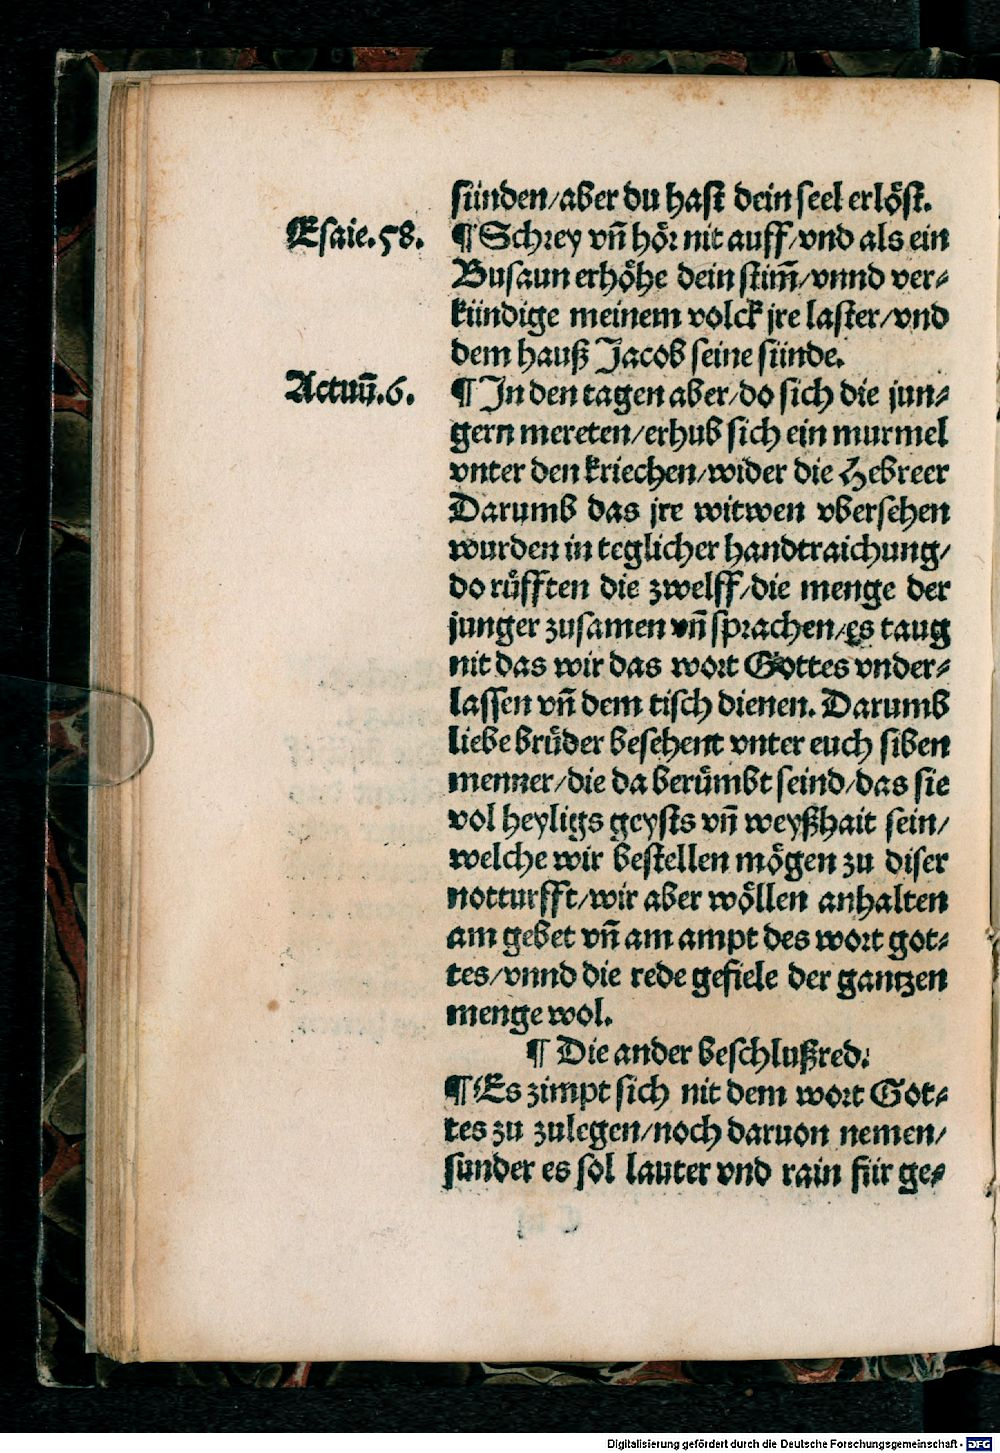 sünden/aber du hast dein seel erlöst.
Esaie.58.
¶ Schrey vñ hör nit auff/vnd als ein
Busaun erhöhe dein stim̃/vnnd ver⸗
kündige meinem volck jre laster/vnd
dem hauß Jacob seine sünde.
Actuũ.6.
¶ In den tagen aber/do sich die jun⸗
gern mereten/erhub sich ein murmel
vnter den kriechen/wider die Hebreer
Darumb das jre witwen vbersehen
wurden in teglicher handtraichung/
do růfften die zwelff/die menge der
junger zusamen vñ sprachen/es taug
nit das wir das wort Gottes vnder⸗
lassen vñ dem tisch dienen. Darumb
liebe brůder besehent vnter euch siben
menner/die da berůmbt seind/das sie
vol heyligs geysts vñ weyßhait sein/
welche wir bestellen mögen zu diser
notturfft/wir aber wöllen anhalten
am gebet vñ am ampt des wort got⸗
tes/vnnd die rede gefiele der gantzen
menge wol.
¶ Die ander beschlußred.
¶ Es zimpt sich nit dem wort Got⸗
tes zu zulegen/noch daruon nemen/
sunder es sol lauter vnd rain für ge⸗
Digitalisierung gefördert durch die Deutsche Forschungsgemeinschaft - DFG